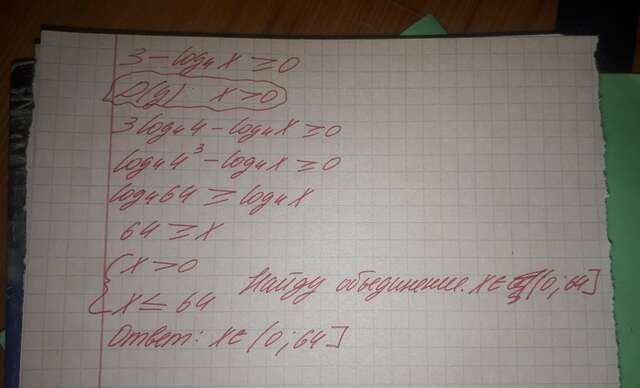 3 - log₄ x ≥ 0
D(y): x > 0
3 log₄ 4 - log₄ x ≥ 0
log₄ 4³ - log₄ x ≥ 0
log₄ 64 ≥ log₄ x
64 ≥ x
{ x > 0
x ≤ 64 Найду объединение. x ∈ (0; 64]
Ответ: x ∈ (0; 64]